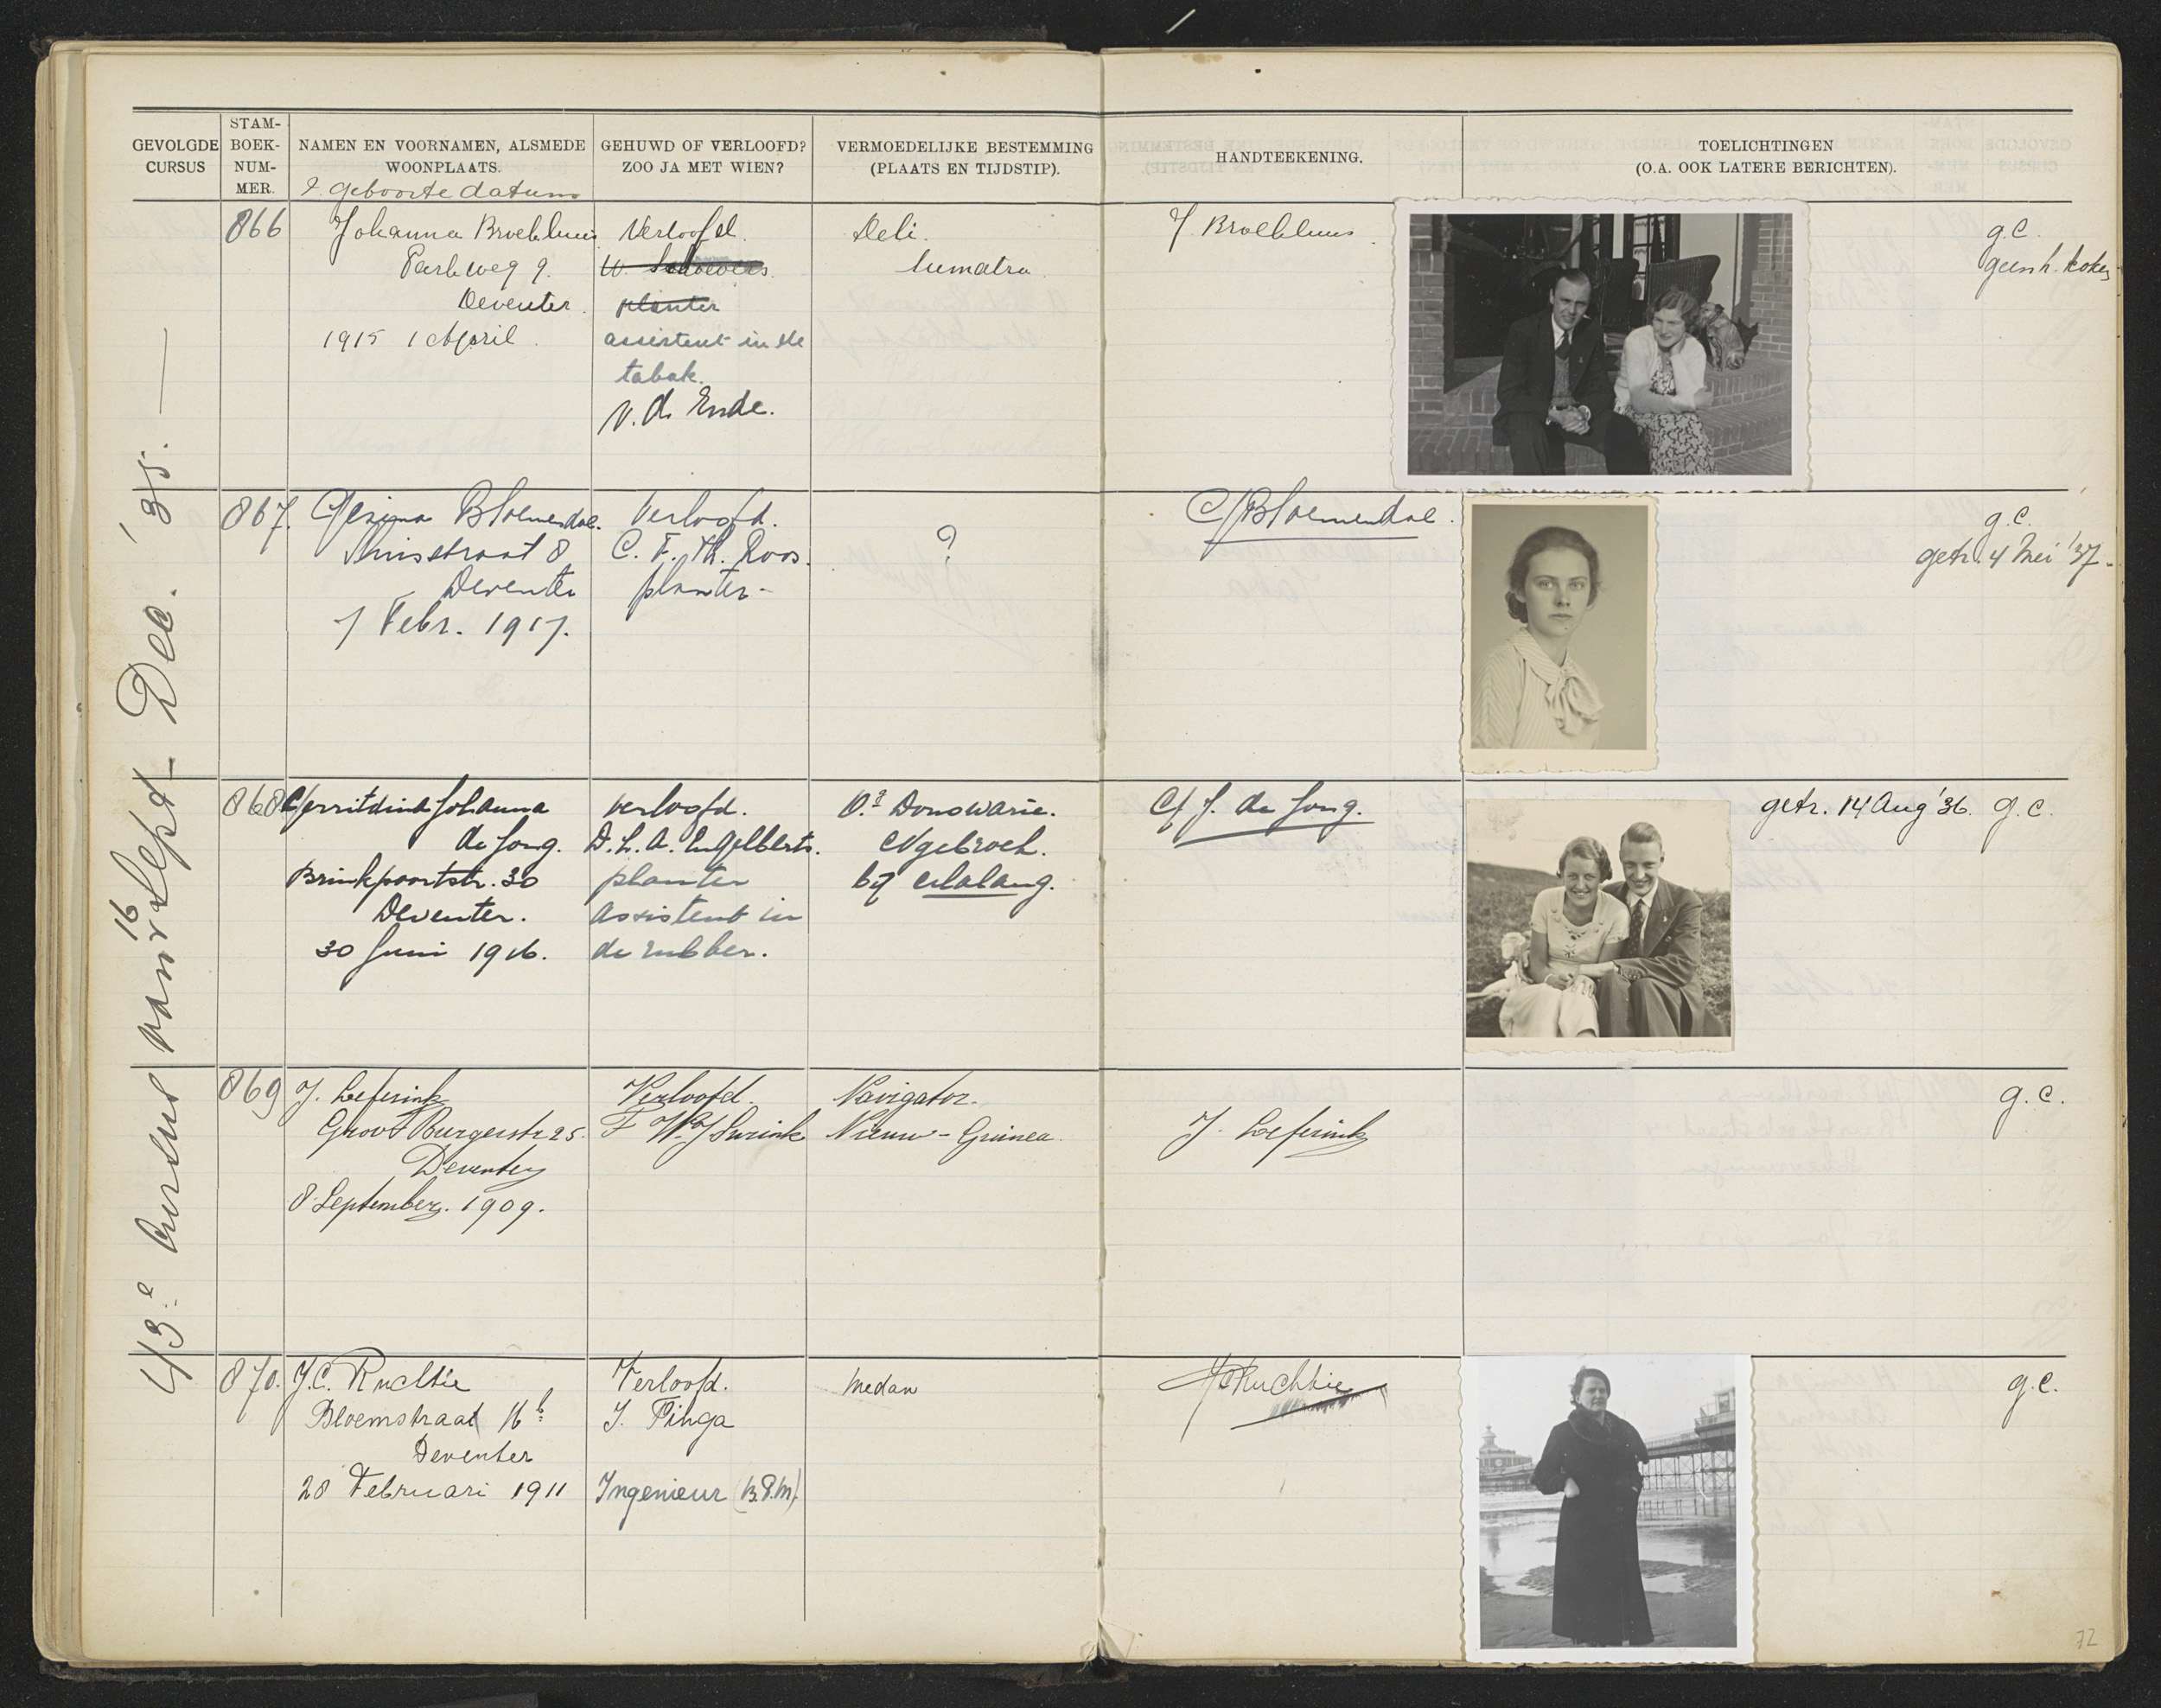 GEVOLGDE CURSUS
STAM-BOEK-NUM-MER.
NAMEN EN VOORNAMEN, ALSMEDE WOONPLAATS.
& geboorte datum
GEHUWD OF VERLOOFD? ZOO JA MET WIEN?
VERMOEDELIJKE BESTEMMING (PLAATS EN TIJDSTIP).
HANDTEEKENING.
TOELICHTINGEN (O.A. OOK LATERE BERICHTEN).
43e Cursus van 16 Sept - Dec. '35. —
866
Johanna Broekhuis
Parkweg 9.
Deventer.
1915 1 April.
Verloofd.
planter
assistent in de
tabak.
v. d. Ende.
Deli.
Sumatra
J. Broekhuis.
g.c.
867.
Gezina Bloemendal.
Deventer
7 Febr. 1917.
Verloofd.
C. F. Th. Roos.
planter-
?
G Bloemendal.
g.c.
getr. 4 Mei '37-
868
Gerritdina Johanna
de Jong.
Brinkpoortstr. 30
Deventer.
30 Juni 1916.
verloofd.
D. L. A. Engelberts.
planter
assistent in
de rubber.
O.g. Donowarie.
Ngebroek.
bij Malang.
G. J. de Jong.
getr. 14 Aug '36. g.c.
869
J. Leferink
Groot Burgerstr 25.
Deventer
8 September. 1909.
Verloofd.
Navigator.
Nieuw-Guinea.
J. Leferink
g.c.
870.
J.C. Ruchtie
Bloemstraat 16 b.
Deventer
28 Februari 1911
Verloofd.
J. Pinga
Ingenieur (B.P.M).
Medan
JCRuchtie
g.c.
72